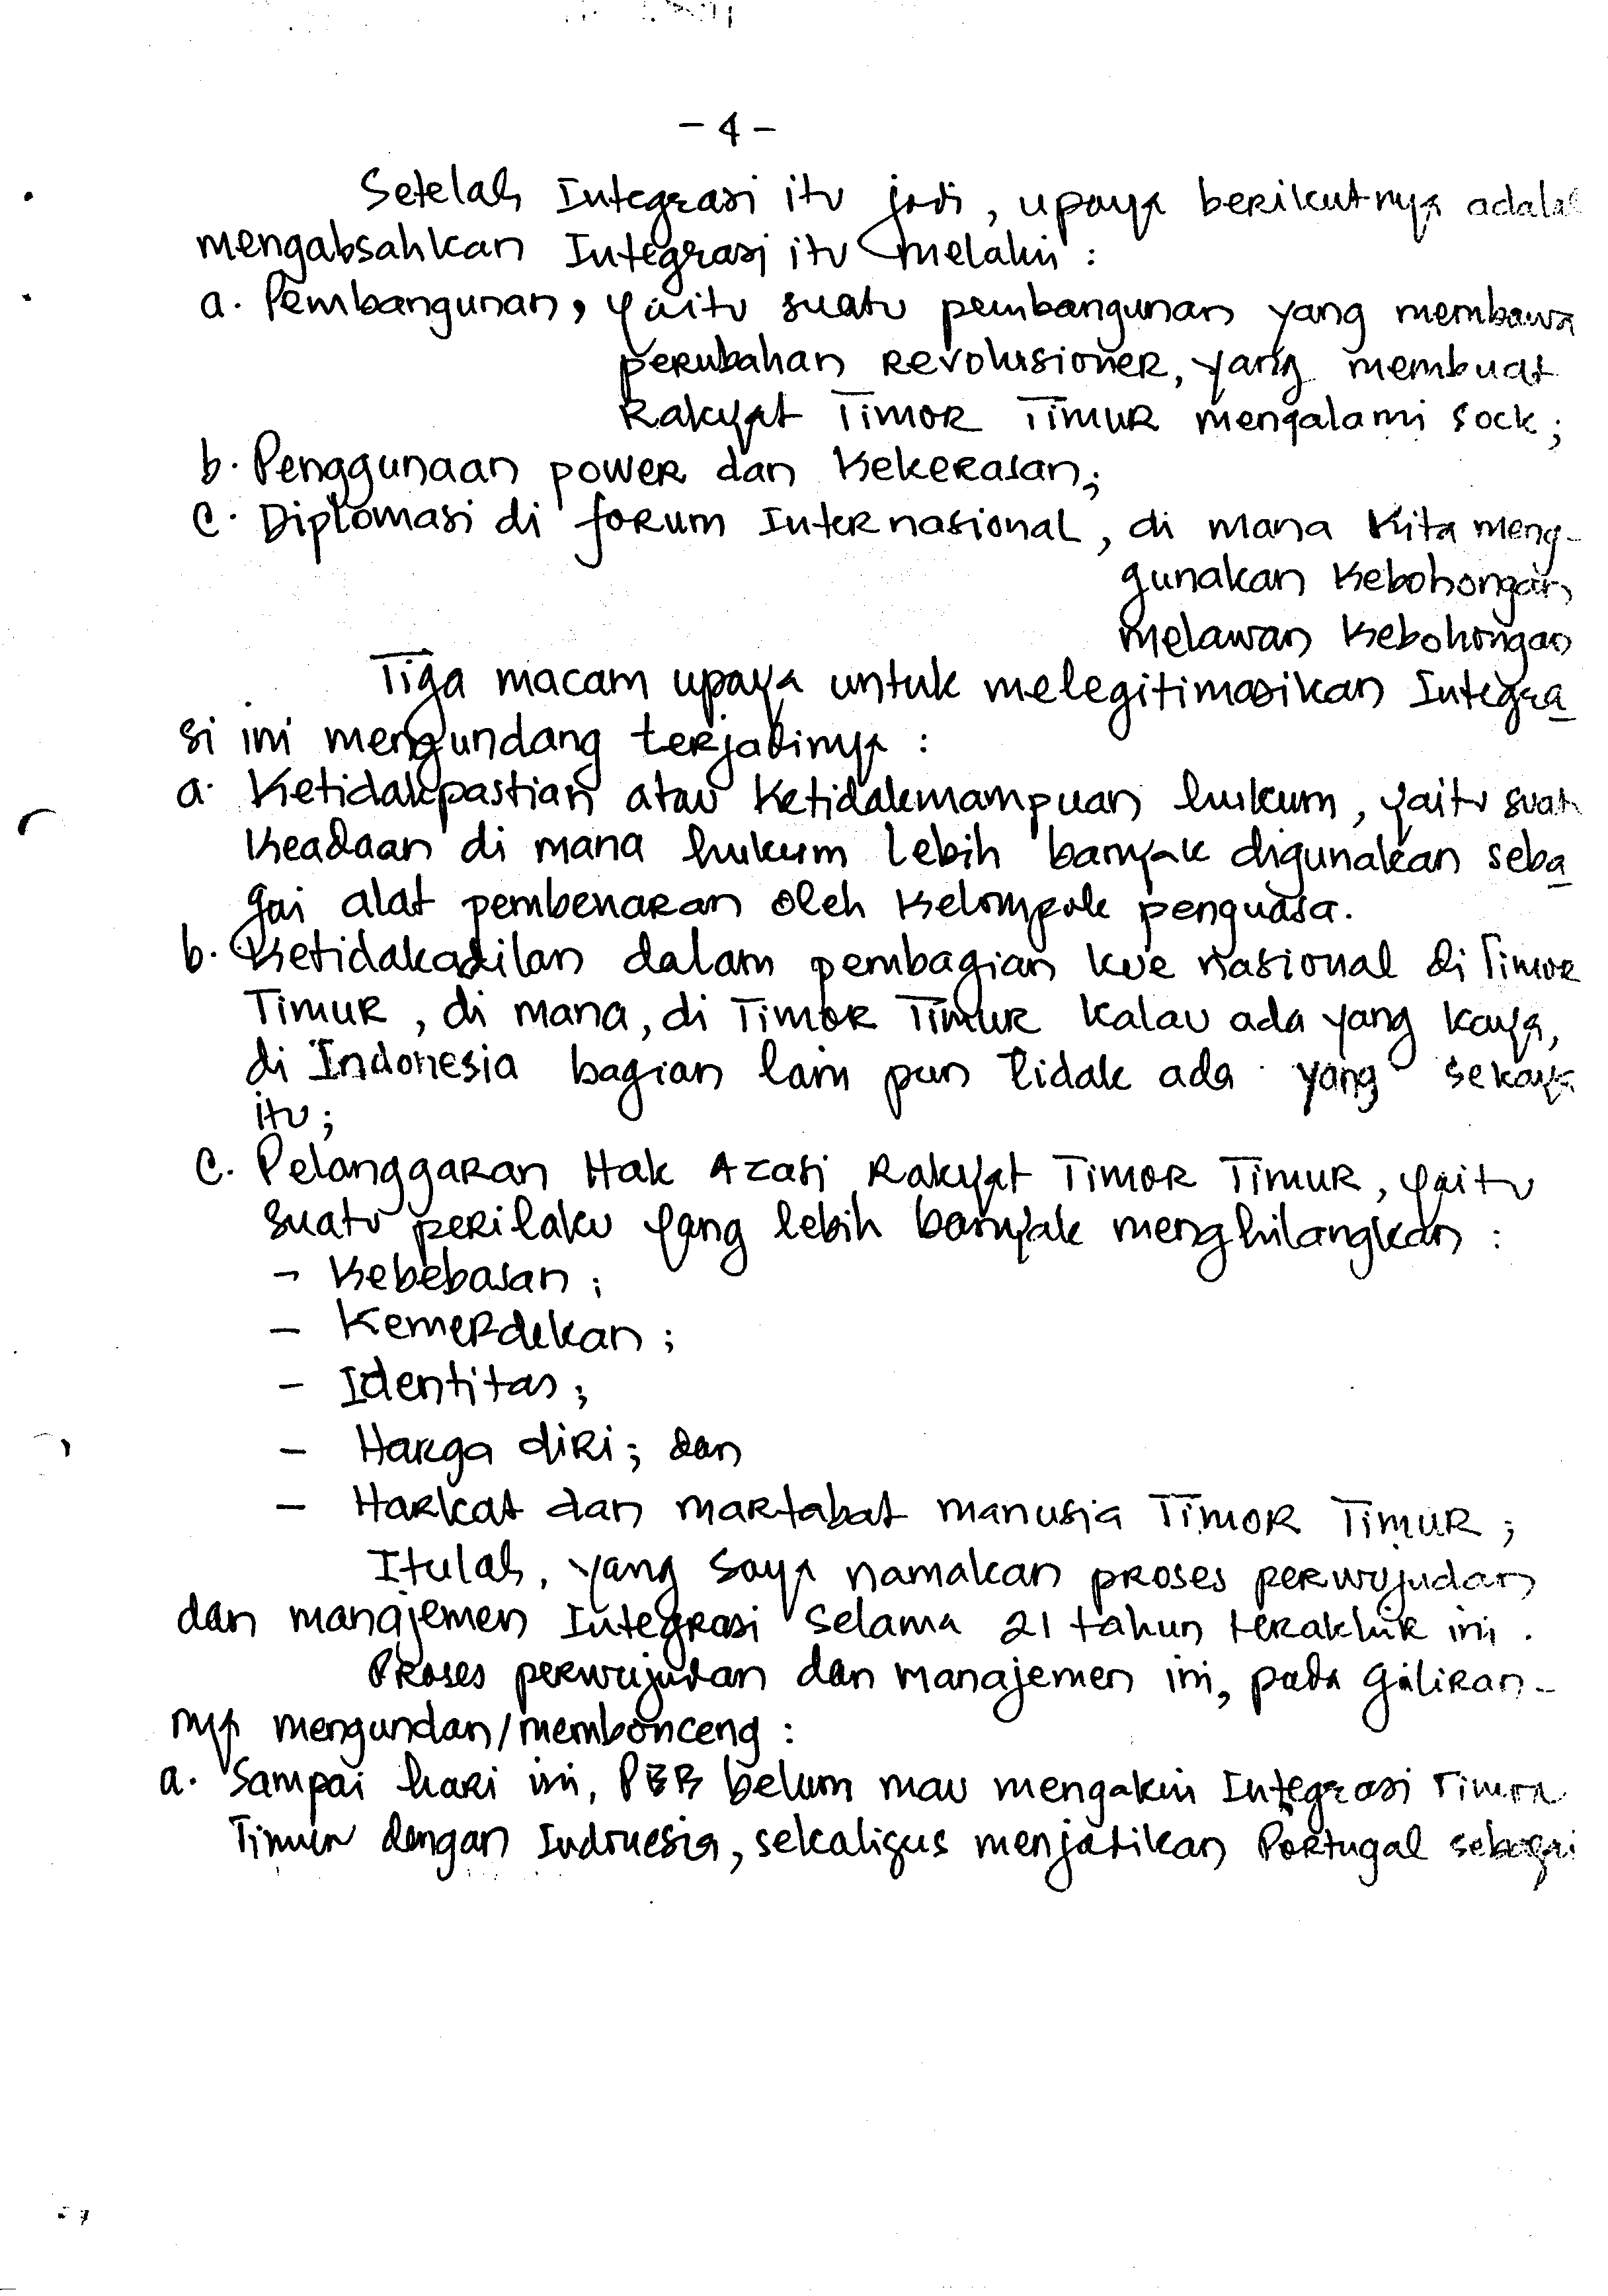 - 4 -
Setelah Integrasi itu jadi, upaya berikutnya adalah
mengabsahkan Integrasi itu melalui :
a. Pembangunan, yaitu suatu pembangunan yang membawa
perubahan revolusioner, yang membuat
Rakyat Timor Timur mengalami sock;
b. Penggunaan power dan kekerasan;
c. Diplomasi di forum Internasional, di mana kita meng-
gunakan kebohongan
melawan kebohongan
Tiga macam upaya untuk melegitimasikan Integra
si ini mengundang terjadinya :
a. Ketidakpastian atau ketidakmampuan hukum, yaitu suatu
keadaan di mana hukum lebih banyak digunakan seba
gai alat pembenaran oleh kelompok penguasa.
b. Ketidakadilan dalam pembagian kue nasional di Timor
Timur, di mana, di Timor Timur kalau ada yang kaya,
di Indonesia bagian lain pun tidak ada yang sekaya
itu;
c. Pelanggaran Hak Azasi Rakyat Timor Timur, yaitu
suatu perilaku yang lebih banyak menghilangkan :
- Kebebasan;
- Kemerdekan;
- Identitas;
- Harga diri; dan
- Harkat dan martabat manusia Timor Timur;
Itulah, yang saya namakan proses perwujudan
dan manajemen Integrasi selama 21 tahun terakhir ini.
Proses perwujudan dan manajemen ini, pada giliran-
nya mengundan/membonceng :
a. Sampai hari ini, PBB belum mau mengakui Integrasi Timor
Timur dengan Indonesia, sekaligus menjadikan Portugal sebagai